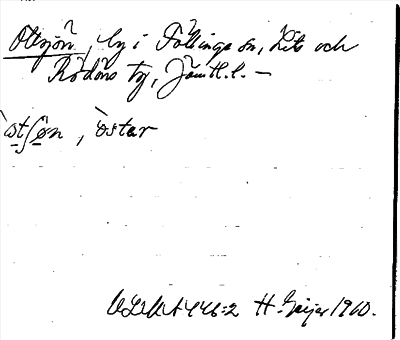 Ottsjön, by i Föllinge sn, Lits och
Rödöns tg, Jämtl. l. –
òstʃøn, òstar
ULMA 446:2 H. Geijer 1910.